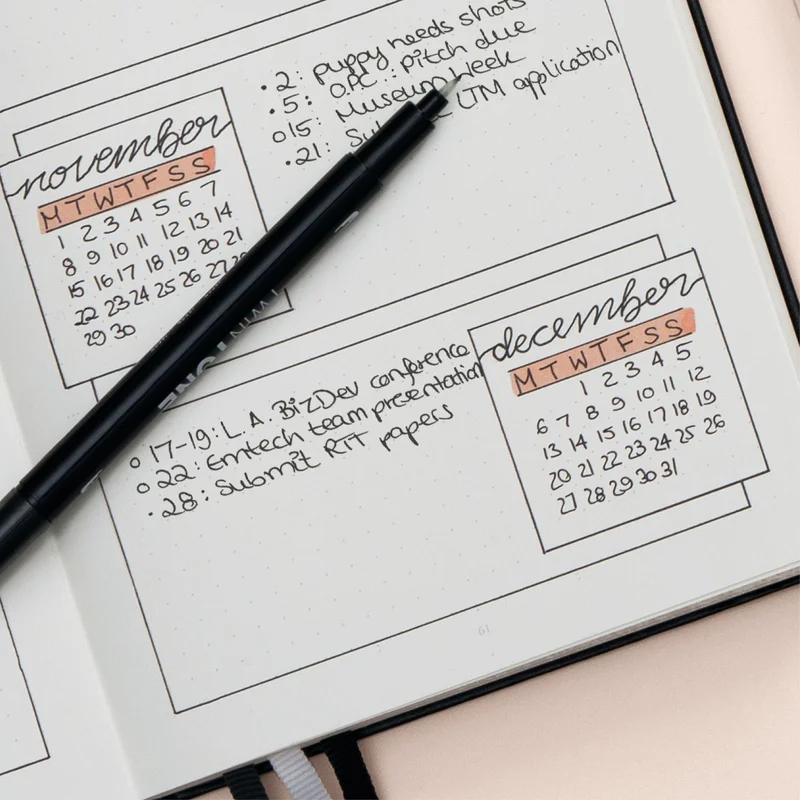 november
M T W T F S S
1 2 3 4 5 6 7
8 9 10 11 12 13 14
15 16 17 18 19 20 21
22 23 24 25 26 27
29 30
• 2: puppy needs shots
• 5: OPC : pitch due
o 15: Museum Week
• 21: LTM application
december
M T W T F S S
1 2 3 4 5
6 7 8 9 10 11 12
13 14 15 16 17 18 19
20 21 22 23 24 25 26
27 28 29 30 31
o 17-19: L.A. BizDev conference
o 22: Emtech team presentation
• 28: Submit RIT papers
TWINTONE
61